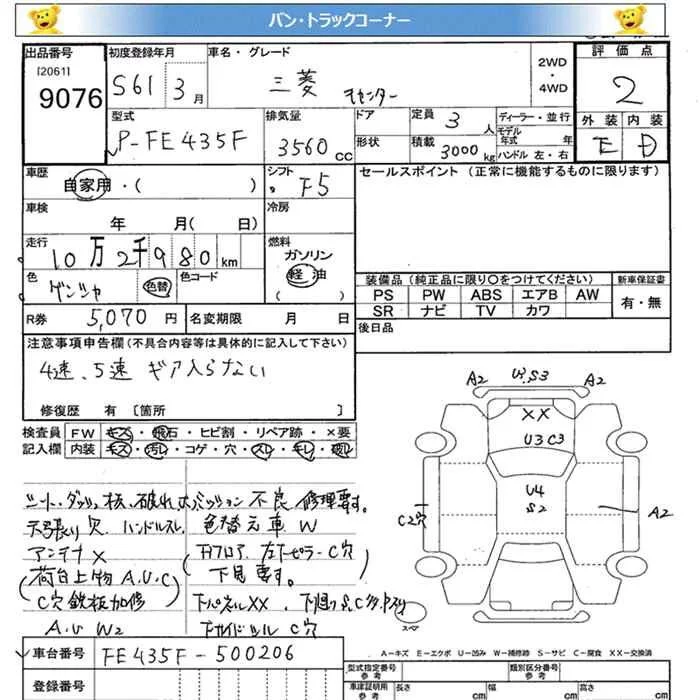 バン・トラックコーナー
出品番号 [2061] 9076
初度登録年月 S61 3月
車名・グレード 三菱 キャンター
2WD・4WD
評価点 2
外装 E 内装 D
型式 P-FE435F
排気量 3560cc
ドア
形状
定員 3人
積載 3000kg
ディーラー・並行
モデル年式 年
ハンドル 左・右
車歴 自家用・( )
シフト F5
セールスポイント(正常に機能するものに限ります)
車検 年 月( 日)
冷房
走行 10万2千980km
燃料 ガソリン 軽油 ( )
色 ゲンシャ 色替
色コード
装備品(純正品に限り○をつけてください)
新車保証書
PS PW ABS エアB AW
有・無
SR ナビ TV カワ
R券 5,070円
名変期限 月 日
後日品
注意事項申告欄(不具合内容等は具体的に記入して下さい)
4速、5速 ギア入らない
修復歴 有 [箇所 ]
検査員 FW キズ・飛石・ヒビ割・リペア跡・×要
記入欄 内装 キズ・汚レ・コゲ・穴・スレ・キレ・破レ
A2 U.S3 A2
XX
U3C3
U4
S2
C2穴
A2
スペ
シート、ダッシュ
ミッション不良 修理要す。
天張り穴 ハンドルスレ、
色替え車 W
アンテナ×
左 C穴
下見要す。
(荷台上物 A.U.C
C穴鉄板加修)
下パネルXX、下廻りS,C
A.U W2
C穴
車台番号 FE435F-500206
登録番号
A-キズ E-エクボ U-凹み W-補修跡 S-サビ C-腐食 XX-交換済
型式指定番号 参考
類別区分番号 参考
車庫証明用 参考
長さ cm
幅 cm
高さ cm